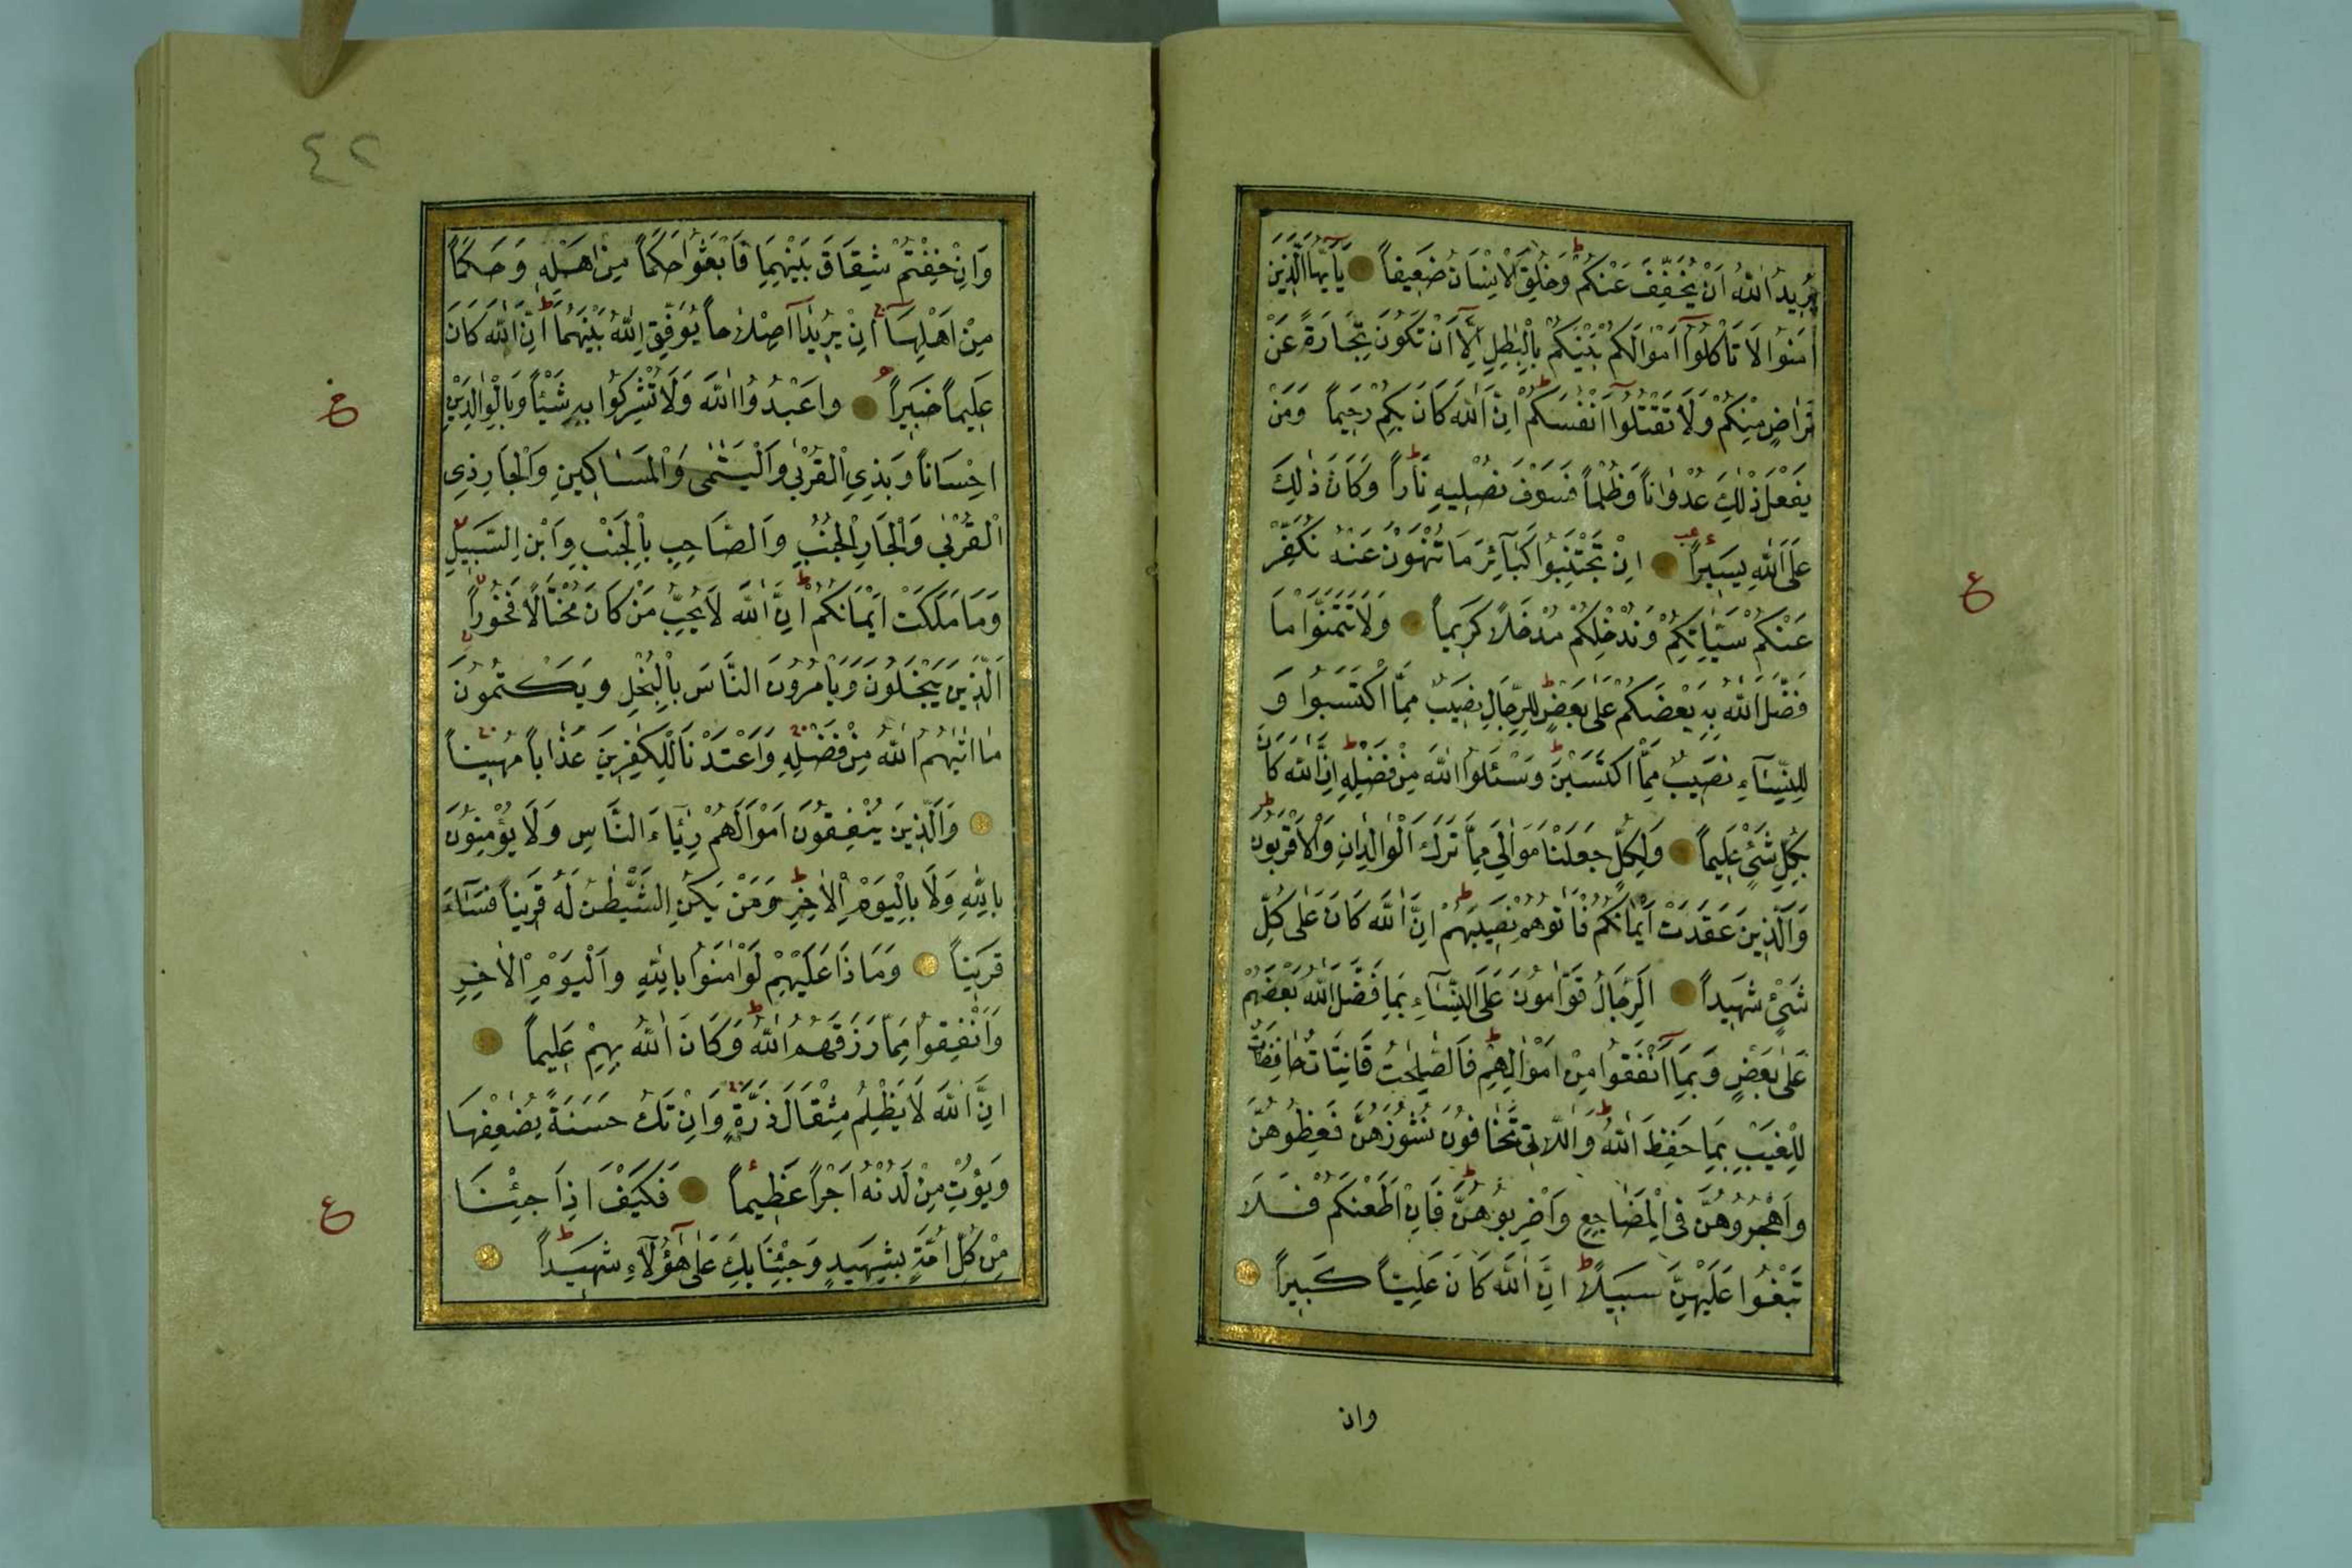 يُرِيدُ اللّٰهُ اَنْ يُخَفِّفَ عَنْكُمْ وَخُلِقَ الْاِنْسَانُ ضَعِيفاً يَا اَيُّهَا الَّذِينَ
اٰمَنُوا لَا تَأْكُلُوا اَمْوَالَكُمْ بَيْنَكُمْ بِالْبَاطِلِ اِلَّا اَنْ تَكُونَ تِجَارَةً عَنْ
تَرَاضٍ مِنْكُمْ وَلَا تَقْتُلُوا اَنْفُسَكُمْ اِنَّ اللّٰهَ كَانَ بِكُمْ رَحِيماً وَمَنْ
يَفْعَلْ ذٰلِكَ عُدْوَاناً وَظُلْماً فَسَوْفَ نُصْلِيهِ نَاراً وَكَانَ ذٰلِكَ
عَلَى اللّٰهِ يَسِيراً اِنْ تَجْتَنِبُوا كَبَآئِرَ مَا تُنْهَوْنَ عَنْهُ نُكَفِّرْ
عَنْكُمْ سَيِّاٰتِكُمْ وَنُدْخِلْكُمْ مُدْخَلاً كَرِيماً وَلَا تَتَمَنَّوْا مَا
فَضَّلَ اللّٰهُ بِهِ بَعْضَكُمْ عَلٰى بَعْضٍ لِلرِّجَالِ نَصِيبٌ مِمَّا اكْتَسَبُوا وَ
لِلنِّسَآءِ نَصِيبٌ مِمَّا اكْتَسَبْنَ وَسْئَلُوا اللّٰهَ مِنْ فَضْلِهِ اِنَّ اللّٰهَ كَانَ
بِكُلِّ شَيْءٍ عَلِيماً وَلِكُلٍّ جَعَلْنَا مَوَالِيَ مِمَّا تَرَكَ الْوَالِدَانِ وَالْاَقْرَبُونَ
وَالَّذِينَ عَقَدَتْ اَيْمَانُكُمْ فَاٰتُوهُمْ نَصِيبَهُمْ اِنَّ اللّٰهَ كَانَ عَلٰى كُلِّ
شَيْءٍ شَهِيداً اَلرِّجَالُ قَوَّامُونَ عَلَى النِّسَآءِ بِمَا فَضَّلَ اللّٰهُ بَعْضَهُمْ
عَلٰى بَعْضٍ وَبِمَا اَنْفَقُوا مِنْ اَمْوَالِهِمْ فَالصَّالِحَاتُ قَانِتَاتٌ حَافِظَاتٌ
لِلْغَيْبِ بِمَا حَفِظَ اللّٰهُ وَاللَّاتِي تَخَافُونَ نُشُوزَهُنَّ فَعِظُوهُنَّ
وَاهْجُرُوهُنَّ فِي الْمَضَاجِعِ وَاضْرِبُوهُنَّ فَاِنْ اَطَعْنَكُمْ فَلَا
تَبْغُوا عَلَيْهِنَّ سَبِيلاً اِنَّ اللّٰهَ كَانَ عَلِيّاً كَبِيراً
وان
ع
٤٢
وَاِنْ خِفْتُمْ شِقَاقَ بَيْنِهِمَا فَابْعَثُوا حَكَماً مِنْ اَهْلِهِ وَحَكَماً
مِنْ اَهْلِهَا اِنْ يُرِيدَا اِصْلَاحاً يُوَفِّقِ اللّٰهُ بَيْنَهُمَا اِنَّ اللّٰهَ كَانَ
عَلِيماً خَبِيراً وَاعْبُدُوا اللّٰهَ وَلَا تُشْرِكُوا بِهِ شَيْئاً وَبِالْوَالِدَيْنِ
اِحْسَاناً وَبِذِي الْقُرْبٰى وَالْيَتٰمٰى وَالْمَسَاكِينِ وَالْجَارِ ذِي
الْقُرْبٰى وَالْجَارِ الْجُنُبِ وَالصَّاحِبِ بِالْجَنْبِ وَابْنِ السَّبِيلِ
وَمَا مَلَكَتْ اَيْمَانُكُمْ اِنَّ اللّٰهَ لَا يُحِبُّ مَنْ كَانَ مُخْتَالاً فَخُوراً
اَلَّذِينَ يَبْخَلُونَ وَيَأْمُرُونَ النَّاسَ بِالْبُخْلِ وَيَكْتُمُونَ
مَا اٰتٰيهُمُ اللّٰهُ مِنْ فَضْلِهِ وَاَعْتَدْنَا لِلْكٰفِرِينَ عَذَاباً مُهِيناً
وَالَّذِينَ يُنْفِقُونَ اَمْوَالَهُمْ رِئَآءَ النَّاسِ وَلَا يُؤْمِنُونَ
بِاللّٰهِ وَلَا بِالْيَوْمِ الْاٰخِرِ وَمَنْ يَكُنِ الشَّيْطٰنُ لَهُ قَرِيناً فَسَآءَ
قَرِيناً وَمَاذَا عَلَيْهِمْ لَوْ اٰمَنُوا بِاللّٰهِ وَالْيَوْمِ الْاٰخِرِ
وَاَنْفَقُوا مِمَّا رَزَقَهُمُ اللّٰهُ وَكَانَ اللّٰهُ بِهِمْ عَلِيماً
اِنَّ اللّٰهَ لَا يَظْلِمُ مِثْقَالَ ذَرَّةٍ وَاِنْ تَكُ حَسَنَةً يُضٰعِفْهَا
وَيُؤْتِ مِنْ لَدُنْهُ اَجْراً عَظِيماً فَكَيْفَ اِذَا جِئْنَا
مِنْ كُلِّ اُمَّةٍ بِشَهِيدٍ وَجِئْنَا بِكَ عَلٰى هٰٓؤُلَآءِ شَهِيداً
ع